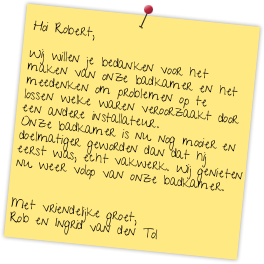 Hoi Robert,
Wij willen je bedanken voor het
maken van onze badkamer en het
meedenken om problemen op te
lossen welke waren veroorzaakt door
een andere installateur.
Onze badkamer is nu nog mooier en
doelmatiger geworden dan dat hij
eerst was, echt vakwerk. Wij genieten
nu weer volop van onze badkamer.
Met vriendelijke groet,
Rob en Ingrid van den Tol